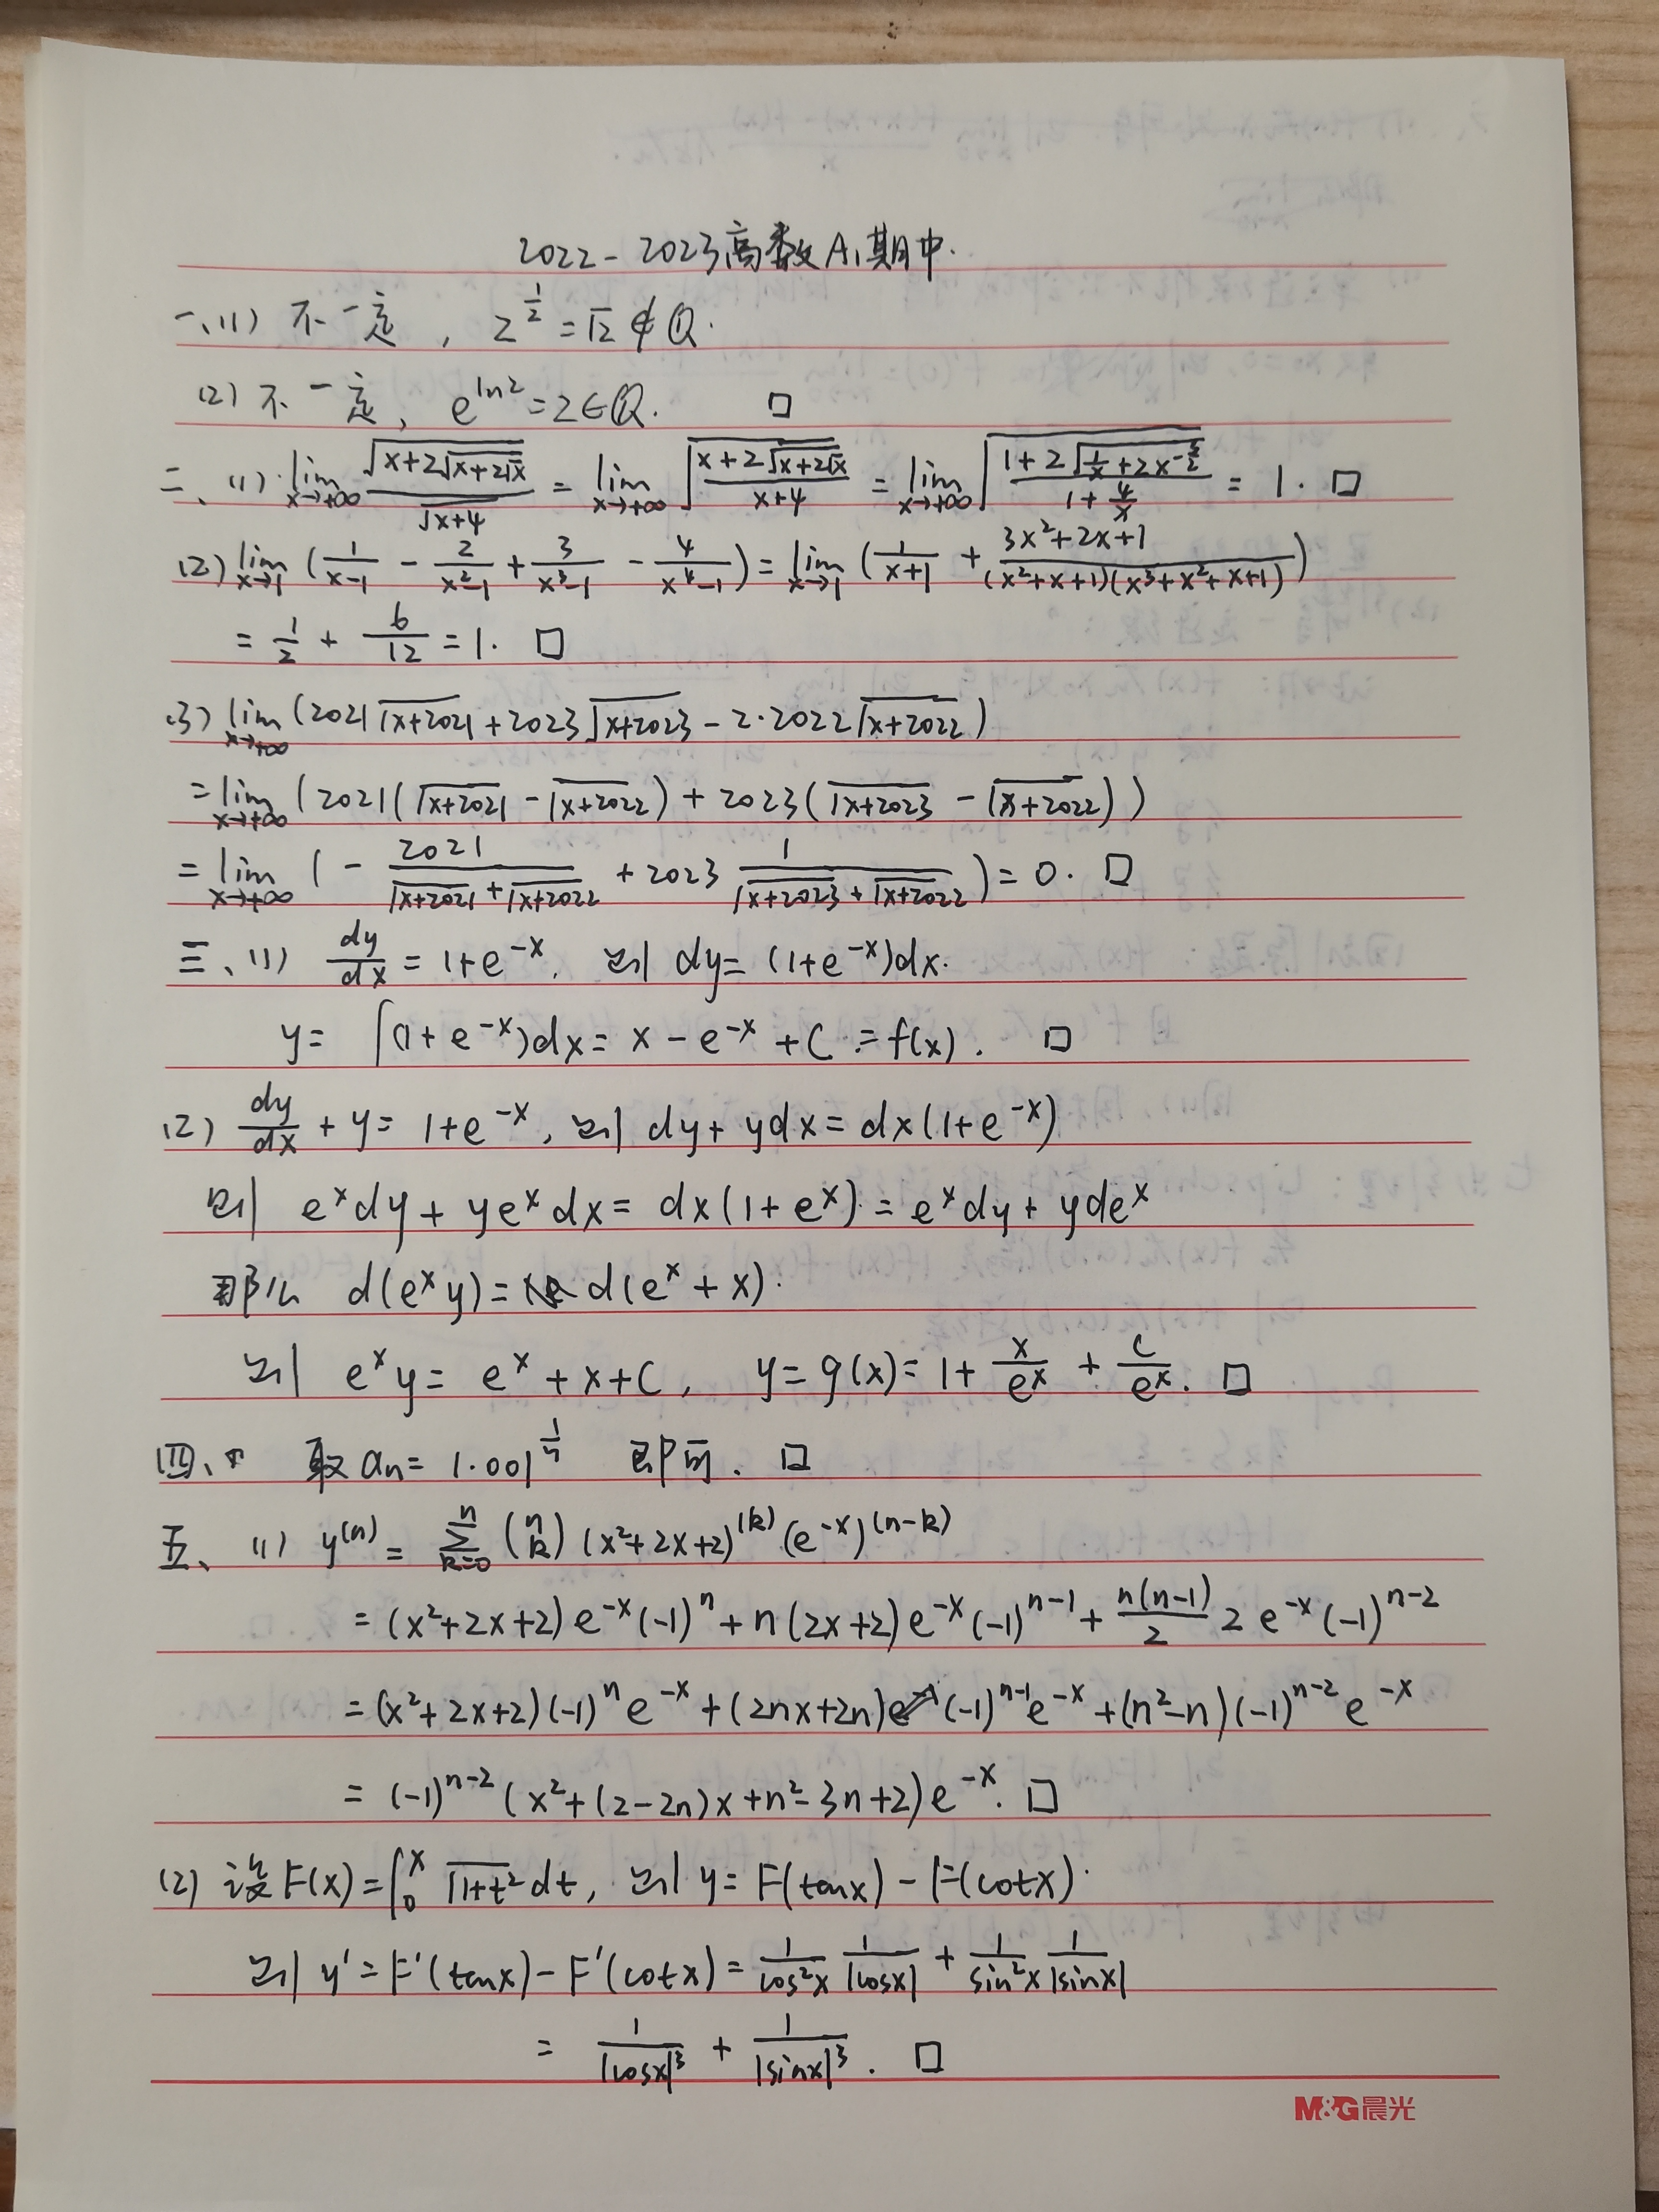 2022-2023高数A₁期中.
一、(1) 不一定, 2^{1/2} = √2 ∉ Q.
(2) 不一定, e^{ln2} = 2 ∈ Q. □
二、(1) lim_{x→+∞} √(x+2√(x+2√x)) / √(x+4) = lim_{x→+∞} √((x+2√(x+2√x)) / (x+4)) = lim_{x→+∞} √((1+2√(1/x+2x^{-3/2})) / (1+4/x)) = 1. □
(2) lim_{x→1} (1/(x-1) - 2/(x²-1) + 3/(x³-1) - 4/(x⁴-1)) = lim_{x→1} (1/(x+1) + (3x²+2x+1)/((x²+x+1)(x³+x²+x+1)))
= 1/2 + 6/12 = 1. □
(3) lim_{x→+∞} (2021√(x+2021) + 2023√(x+2023) - 2·2022√(x+2022))
= lim_{x→+∞} (2021(√(x+2021) - √(x+2022)) + 2023(√(x+2023) - √(x+2022)))
= lim_{x→+∞} (- 2021/(√(x+2021)+√(x+2022)) + 2023 1/(√(x+2023)+√(x+2022))) = 0. □
三、(1) dy/dx = 1+e^{-x}, 则 dy = (1+e^{-x})dx.
y = ∫(1+e^{-x})dx = x - e^{-x} + C = f(x). □
(2) dy/dx + y = 1+e^{-x}, 则 dy + ydx = dx(1+e^{-x})
则 e^x dy + ye^x dx = dx(1+e^x) = e^x dy + yde^x
那么 d(e^x y) = d(e^x + x).
则 e^x y = e^x + x + C, y = g(x) = 1 + x/e^x + C/e^x. □
四、 取 a_n = 1.001^{1/n} 即可. □
五、(1) y^{(n)} = Σ_{k=0}^{n} (n k) (x²+2x+2)^{(k)} (e^{-x})^{(n-k)}
= (x²+2x+2) e^{-x} (-1)^n + n(2x+2) e^{-x} (-1)^{n-1} + n(n-1)/2 2 e^{-x} (-1)^{n-2}
= (x²+2x+2)(-1)^n e^{-x} + (2nx+2n) (-1)^{n-1} e^{-x} + (n²-n)(-1)^{n-2} e^{-x}
= (-1)^{n-2} (x²+(2-2n)x+n²-3n+2) e^{-x}. □
(2) 设 F(x) = ∫_0^x √(1+t²) dt, 则 y = F(tanx) - F(cotx).
则 y' = F'(tanx) - F'(cotx) = 1/cos²x 1/|cosx| + 1/sin²x 1/|sinx|
= 1/|cosx|³ + 1/|sinx|³. □
M&G晨光